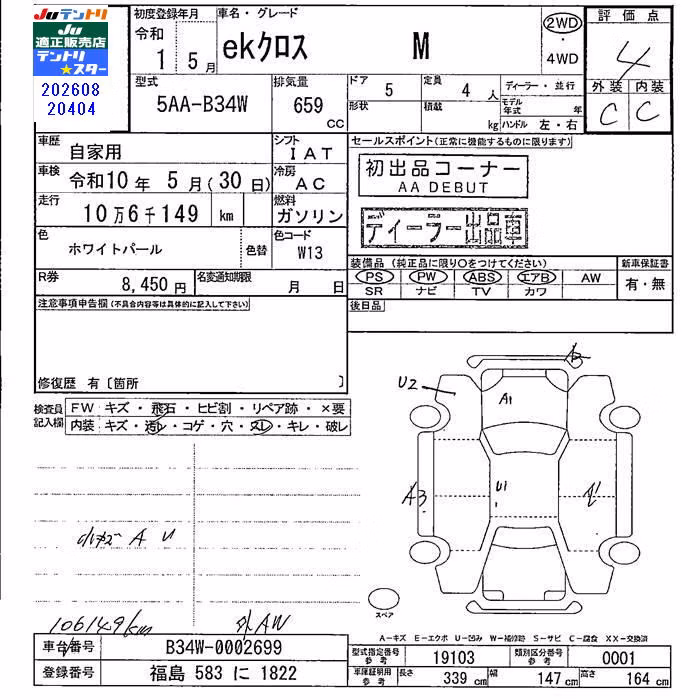 Juテントリ
Ju
適正販売店
テントリ
★スター
202608
20404
初度登録年月
令和
1 5月
車名・グレード
ekクロス M
2WD
・
4WD
評価点
4
外装 内装
C C
型式
5AA-B34W
排気量
659
CC
ドア 5
定員 4 人
形状
積載 kg
ディーラー・並行
モデル年式 年
ハンドル 左・右
車歴
自家用
シフト
IAT
車検 令和10年 5月(30日)
冷房
AC
走行 10万6千149 km
燃料
ガソリン
色
ホワイトパール
色替
色コード
W13
R券 8,450円
名変通知期限 月 日
セールスポイント(正常に機能するものに限ります)
初出品コーナー
AA DEBUT
ディーラー出品車
装備品(純正品に限り○をつけてください)
新車保証書
PS PW ABS エアB AW
有・無
SR ナビ TV カワ
後日品
注意事項申告欄(不具合内容等は具体的に記入して下さい)
修復歴 有〔箇所 〕
検査員
記入欄
FW キズ・飛石・ヒビ割・リペア跡・×要
内装 キズ・汚レ・コゲ・穴・スレ・キレ・破レ
U2
A1
A3
U1
小キズ A U
106149km
外AW
スペア
A-キズ E-エクボ U-凹み W-補修跡 S-サビ C-腐食 XX-交換済
車台番号 B34W-0002699
登録番号 福島 583 に 1822
型式指定番号
参考
19103
類別区分番号
参考
0001
車庫証明用
参考
長さ 339 cm
幅 147 cm
高さ 164 cm